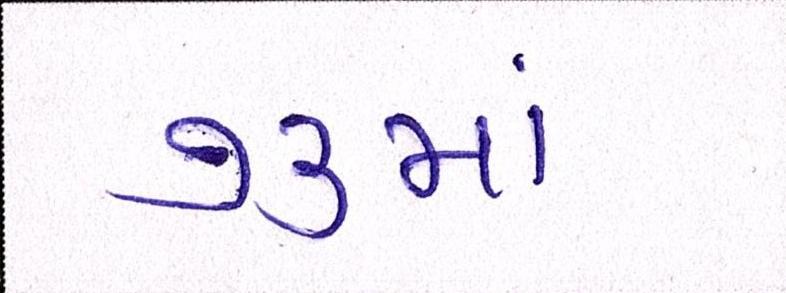 ૭૩માં